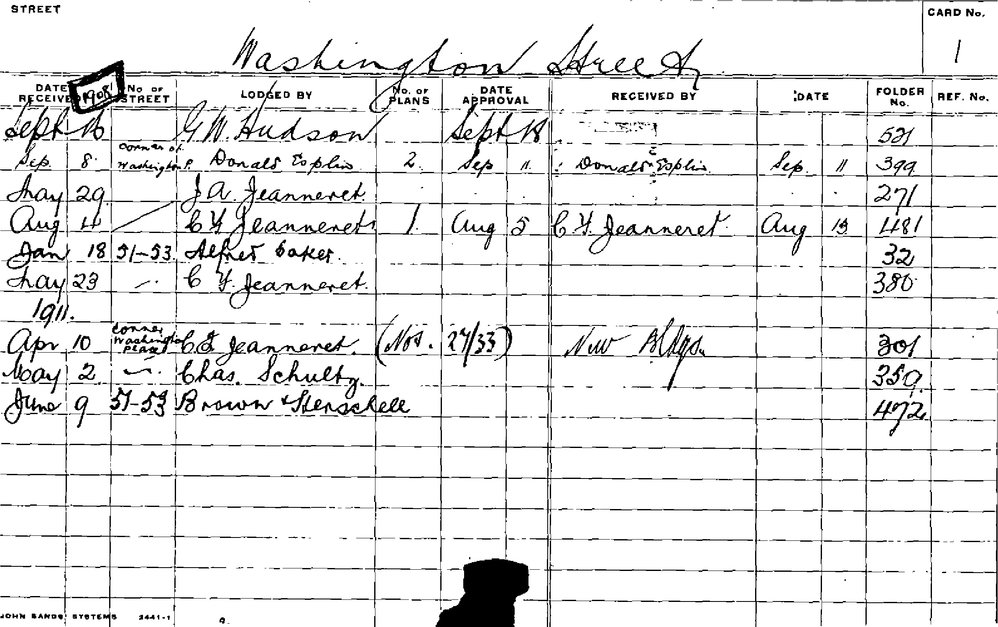 STREET CARD No.
Washington Street 1
DATE RECEIVED 1908 No OF STREET LODGED BY No. OF PLANS DATE APPROVAL RECEIVED BY DATE FOLDER No. REF. No.
Sept 16 G W. Hudson Sept 18 521
Sep. 8 corner of Washington P. Donald Esplin 2 Sep 11 Donald Esplin Sep. 11 399
May 29 J A. Jeanneret. 271
Aug 4 C Y Jeanneret 1 Aug 5 C Y. Jeanneret Aug 13 481
Jan 18 51-53 Alfred Baker. 32
May 23 C Y. Jeanneret. 380
1911.
Apr 10 corner Washington Place C Y Jeanneret. (Nos. 27/33) New Bldgs. 301
May 2 Chas. Schultz. 359
June 9 51-53 Brown & Henschell 472
JOHN SANDS SYSTEMS 3441-1